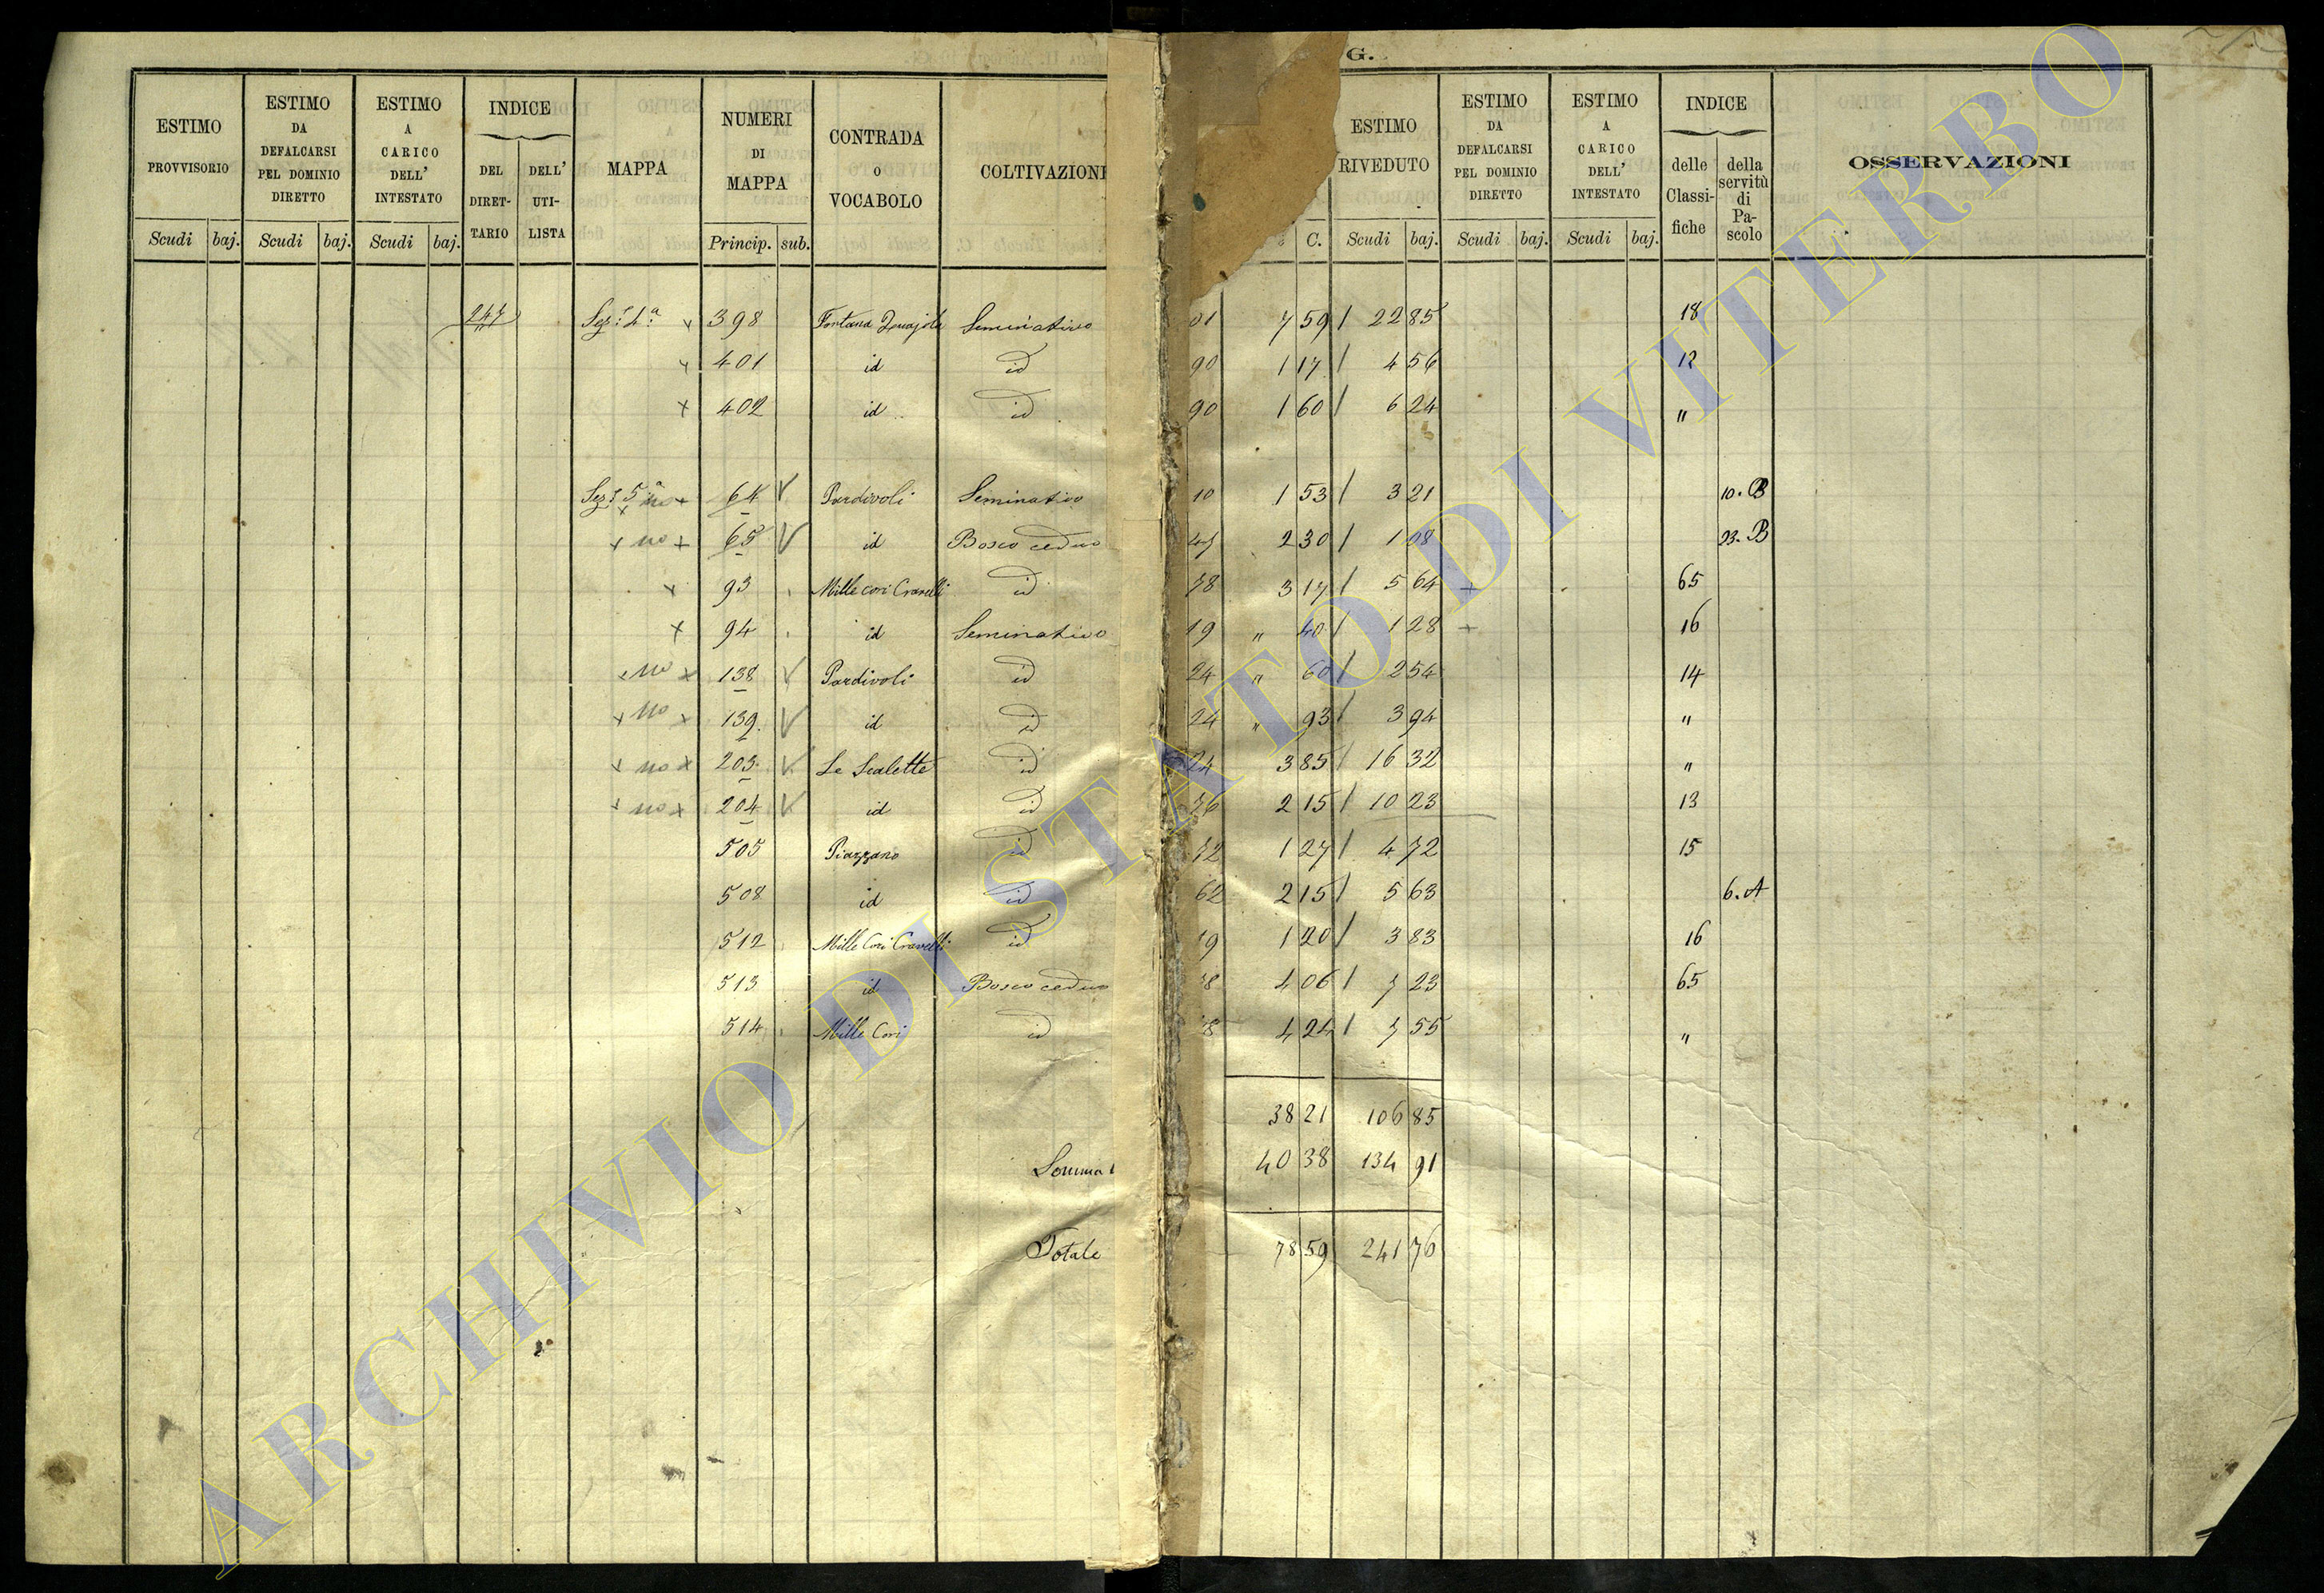 G.
ESTIMO PROVVISORIO Scudi baj.
ESTIMO DA DEFALCARSI PEL DOMINIO DIRETTO Scudi baj.
ESTIMO A CARICO DELL' INTESTATO Scudi baj.
INDICE DEL DIRET-TARIO DELL' UTI-LISTA
MAPPA
NUMERI DI MAPPA Princip. sub.
CONTRADA O VOCABOLO
COLTIVAZIONI
C.
ESTIMO RIVEDUTO Scudi baj.
ESTIMO DA DEFALCARSI PEL DOMINIO DIRETTO Scudi baj.
ESTIMO A CARICO DELL' INTESTATO Scudi baj.
INDICE delle Classi-fiche della servitù di Pa-scolo
OSSERVAZIONI
247 Sez.e 4.a x 398 Fontana Seminativo 01 7 59 / 22 85 18
x 401 id id 90 1 17 / 4 56 12
x 402 id id 90 1 60 / 6 24 "
Sez.e 5.a x no x 64 V Pardivoli Seminativo 10 1 53 / 3 21 10. B
x no x 65 V id Bosco ceduo 47 2 30 / 1 08 23. B
x 93 Mille cori Cravelli id 78 3 17 / 5 64 + 65
x 94 id Seminativo 19 " 40 / 1 28 + 16
x no x 138 V Pardivoli id 24 " 60 / 2 54 14
x no x 139. V id id 24 " 93 / 3 94 "
x no x 203. V Le Scalette id 24 3 85 / 16 32 "
x no x 204 V id id 76 2 15 / 10 23 13
505 Piazzano id 72 1 27 / 4 72 15
508 id id 62 2 15 / 5 63 6. A
512 Mille Cori Cravelli id 19 1 20 / 3 83 16
513 id Bosco ceduo 78 4 06 / 7 23 65
514 Mille Cori id 78 4 24 / 7 55 "
38 21 106 85
Somma 40 38 134 91
Totale 78 59 241 76
ARCHIVIO DI STATO DI VITERBO